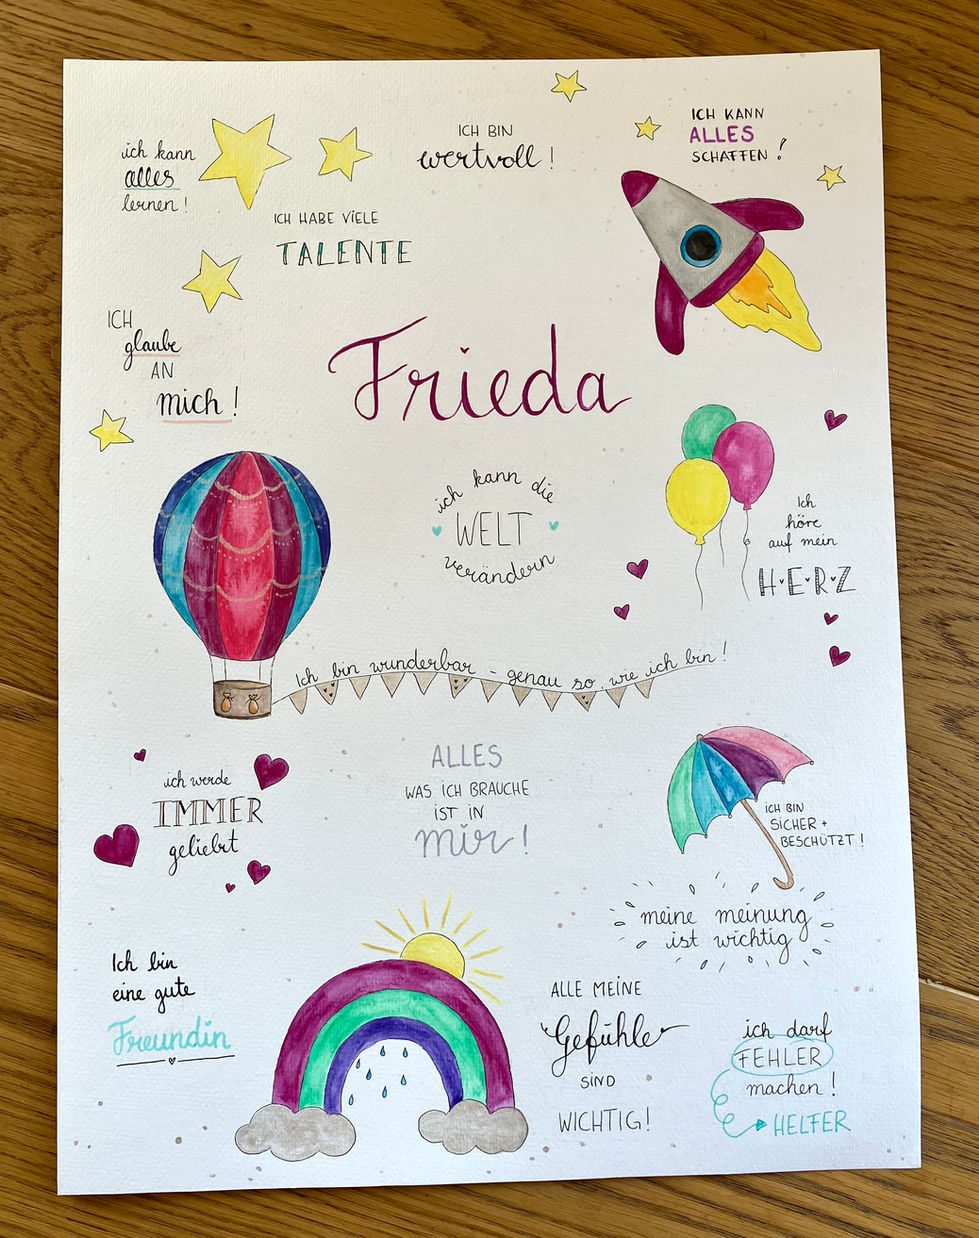 ich kann
alles
lernen!
ICH HABE VIELE
TALENTE
ICH BIN
wertvoll!
ICH KANN
ALLES
SCHAFFEN!
ICH
glaube
AN
mich!
Frieda
ich kann die
WELT
verändern
Ich
höre
auf mein
HERZ
Ich bin wunderbar - genau so, wie ich bin!
ich werde
IMMER
geliebt
ALLES
WAS ICH BRAUCHE
IST IN
mir!
ICH BIN
SICHER +
BESCHÜTZT!
meine meinung
ist wichtig
Ich bin
eine gute
Freundin
ALLE MEINE
Gefühle
SIND
WICHTIG!
ich darf
FEHLER
machen!
HELFER